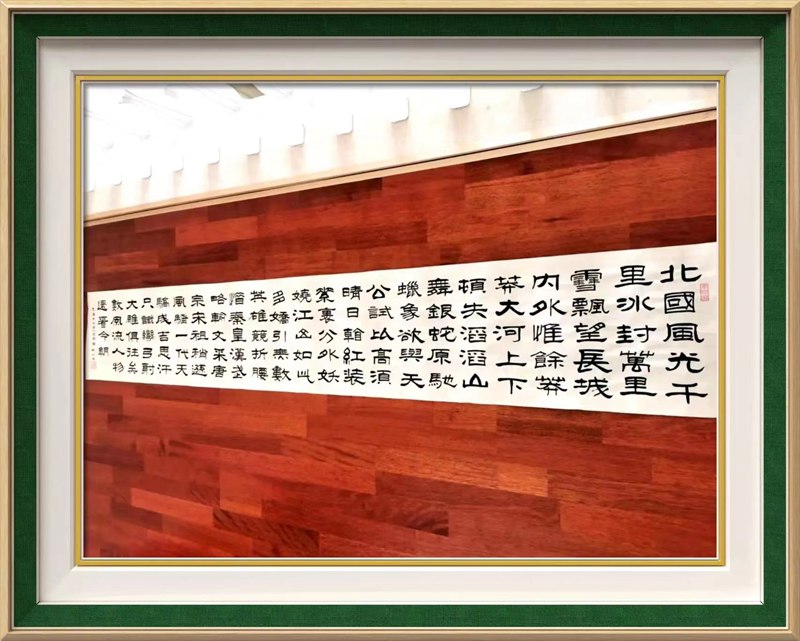 北國風光千
里冰封萬里
雪飄望長城
内外惟餘莽
莽大河上下
頓失滔滔山
舞銀蛇原馳
蠟象欲與天
公試比高須
晴日看紅装
素裹分外妖
嬈江山如此
多嬌引無數
英雄競折腰
惜秦皇漢武
略輸文采唐
宗宋祖稍遜
風騷一代天
驕成吉思汗
只識彎弓射
大雕俱往矣
數風流人物
還看今朝